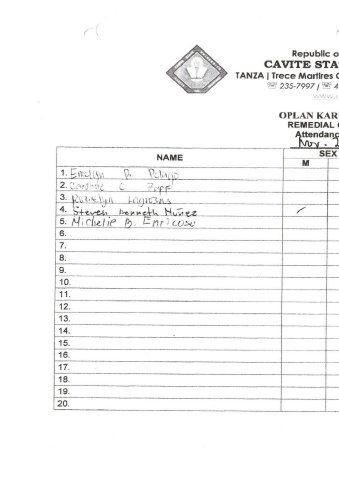 Republic o
CAVITE STA
TANZA | Trece Martires C
☏ 235-7997 / ☏ 4
www.c
OPLAN KAR
REMEDIAL
Attendanc
Nov.
NAME
SEX
M
1. Emelyn D. Pelayo
2. C. Zapf
3. Roselyn
4. Steven Kenneth Muñez
5. Michelle B. Enricoso
6.
7.
8.
9.
10.
11.
12.
13.
14.
15.
16.
17.
18.
19.
20.